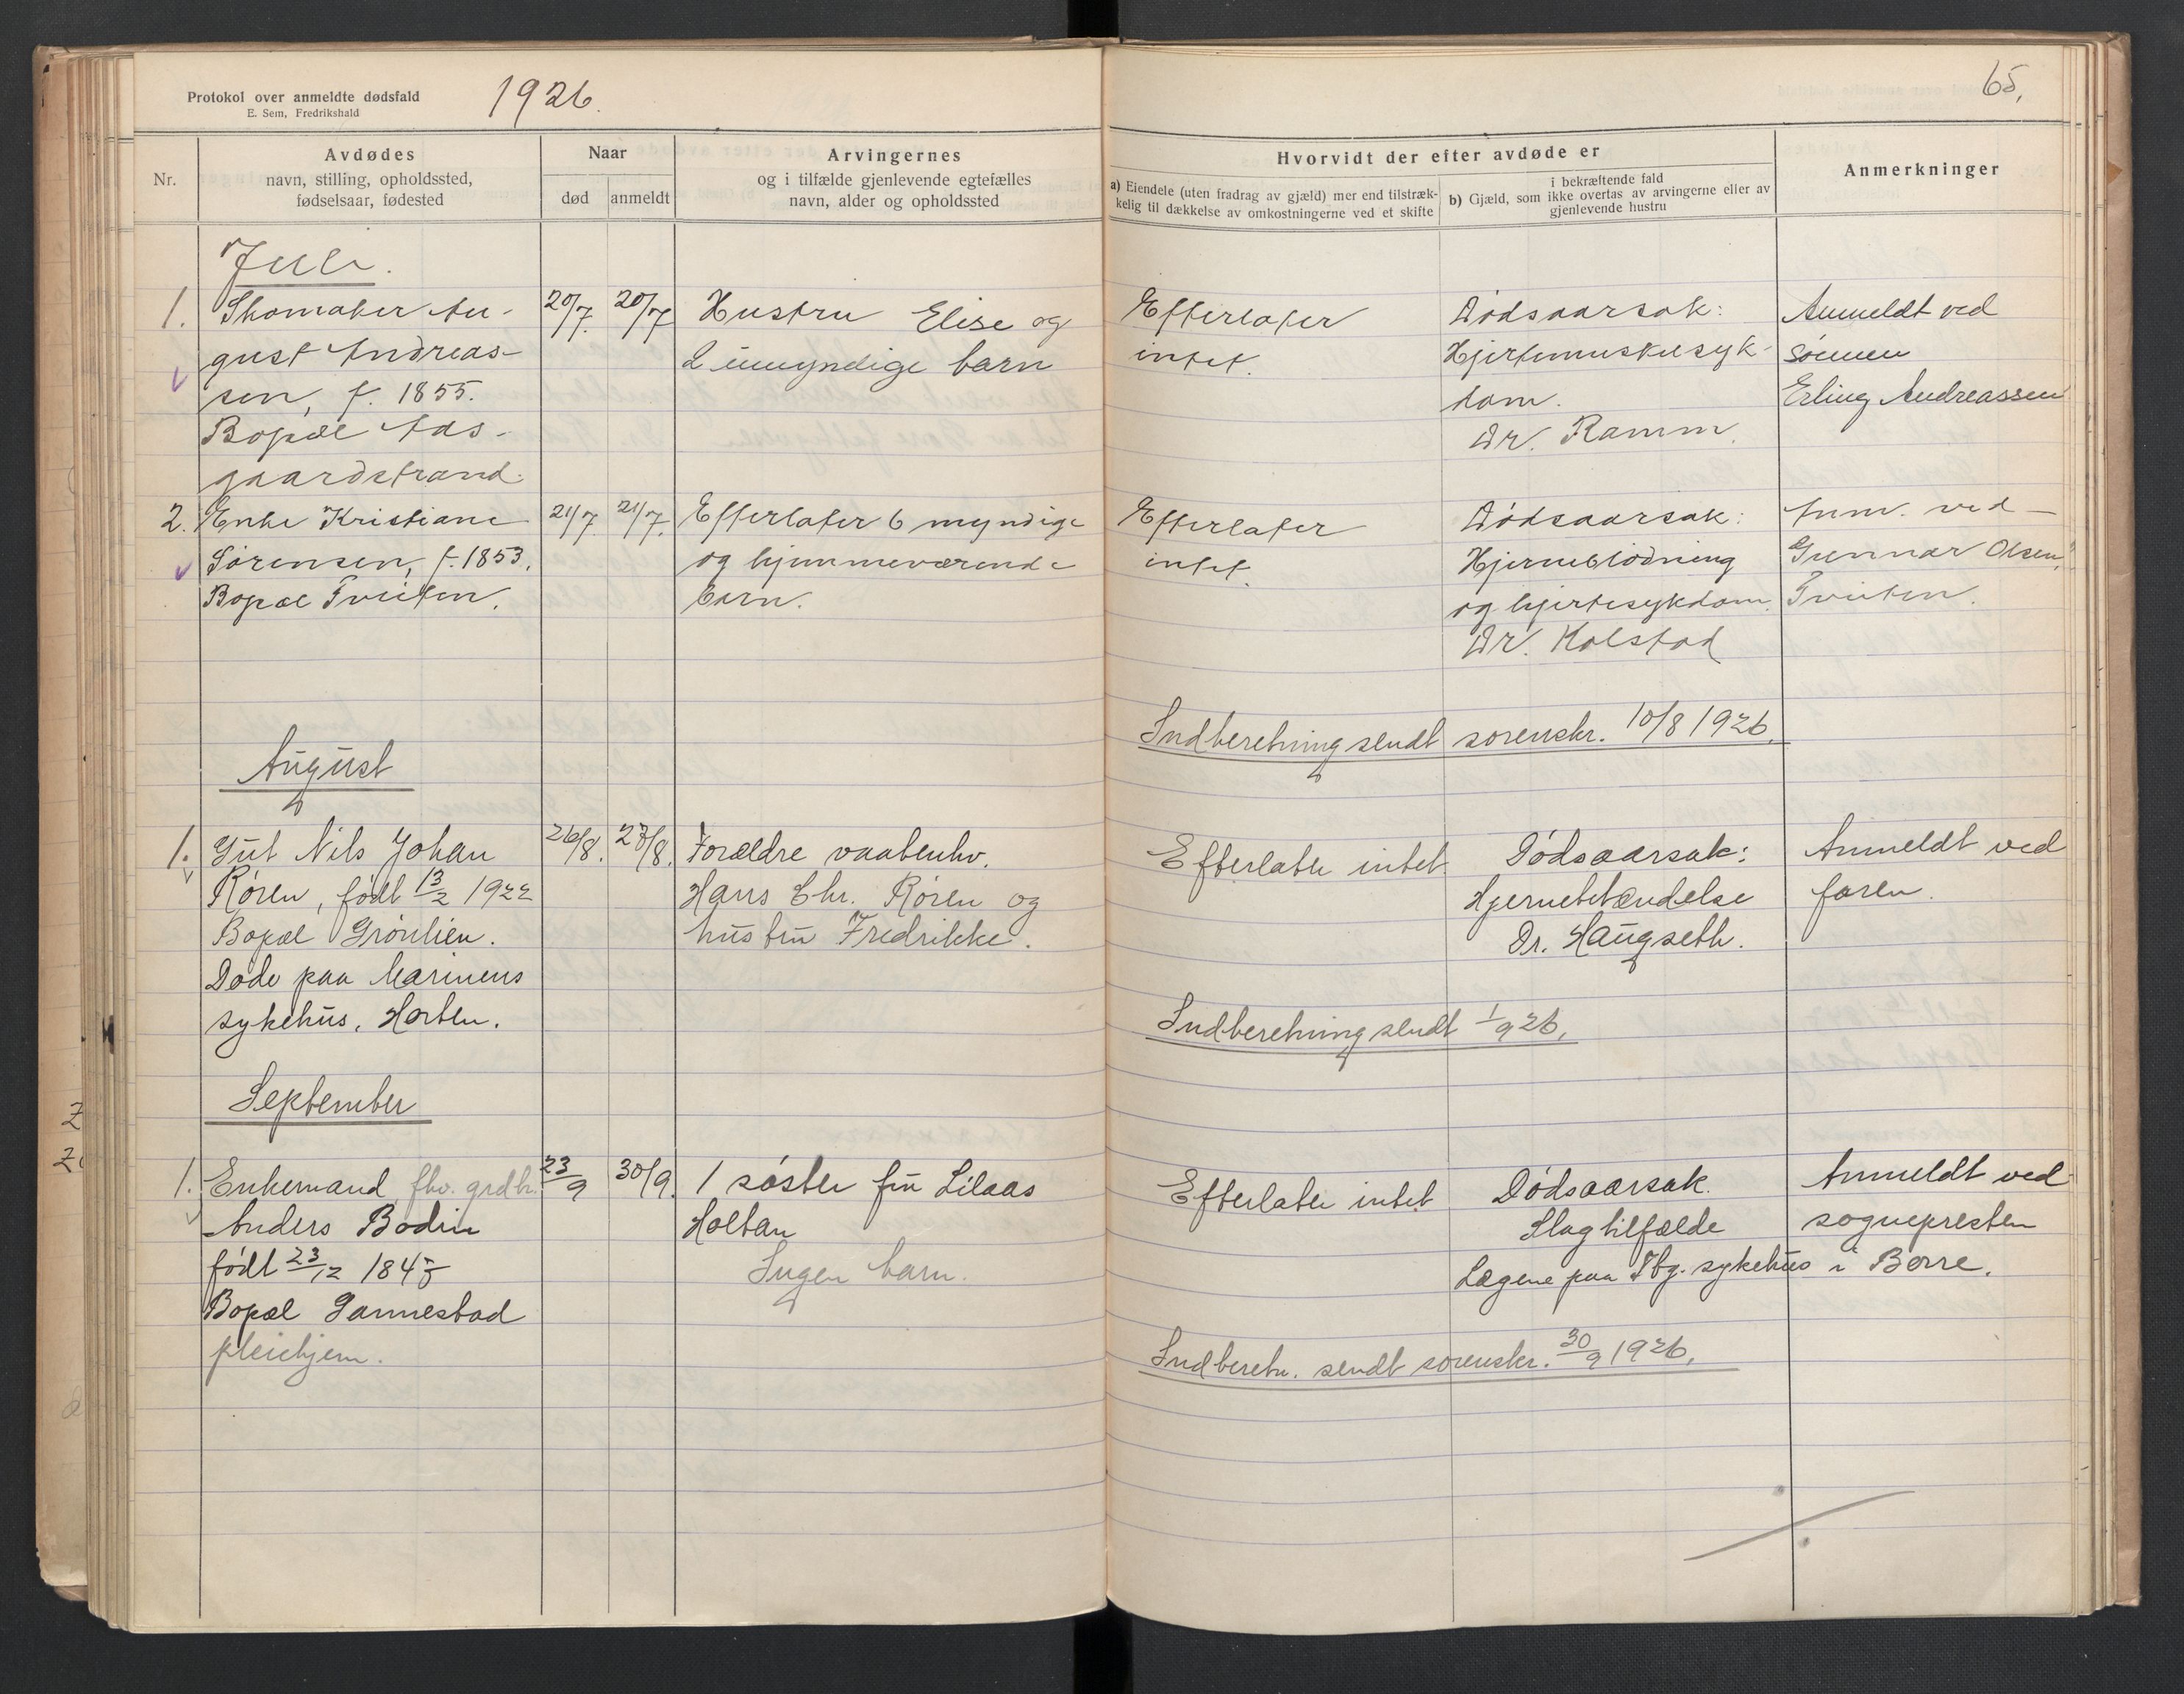 Protokol over anmeldte dødsfald
E. Sem, Fredrikshald
1926.
65.
Nr.
Avdødes
navn, stilling, opholdssted,
fødselsaar, fødested
Naar
død
anmeldt
Arvingernes
og i tilfælde gjenlevende egtefælles
navn, alder og opholdssted
Hvorvidt der efter avdøde er
a) Eiendele (uten fradrag av gjæld) mer end tilstræk-
kelig til dækkelse av omkostningerne ved et skifte
i bekræftende fald
b) Gjæld, som ikke overtas av arvingerne eller av
gjenlevende hustru
Anmerkninger
Juli.
1.
Skomaker Au-
gust Andreas-
sen, f. 1855.
Bopæl Aas-
gaardstrand.
20/7.
20/7
Hustru Elise og
2 umyndige barn
Efterlater
intet.
Dødsaarsak:
Hjertemuskelsyk-
dom.
Dr. Ramm.
Anmeldt ved
sönnen
Erling Andreassen
2.
Enke Kristiane
Sørensen, f. 1853.
Bopæl Tveiten.
21/7.
21/7.
Efterlater 6 myndige
og hjemmeværende
barn.
Efterlater
intet.
Dødsaarsak:
Hjerneblødning
og hjertesykdom.
Dr. Holstad
Anm. ved
Gunnar Olsen,
Tveiten.
Indberetning sendt sorenskr. 10/8 1926.
August
1.
Gut Nils Johan
Røren, født 13/2 1922
Bopæl Grønlien.
Døde paa Marinens
sykehus, Horten.
26/8.
27/8.
Forældre vaabenhv.
Hans Chr. Røren og
hustru Fredrikke.
Efterlater intet
Dødsaarsak:
Hjernebetændelse
Dr. Haugseth.
Anmeldt ved
faren.
Indberetning sendt 1/9 26.
September
1.
Enkemand, fhv. grdbr.
Anders Bodin
født 23/12
Bopæl Gannestad
pleiehjem.
23/9
30/9.
1 søster fru Lilaas
Holtan
Ingen barn.
Efterlater intet
Dødsaarsak.
Slagtilfælde
Lægene paa Tbg. sykehus
Anmeldt ved
sognepresten
i Borre.
Indberetn. sendt sorenskr. 30/9 1926.